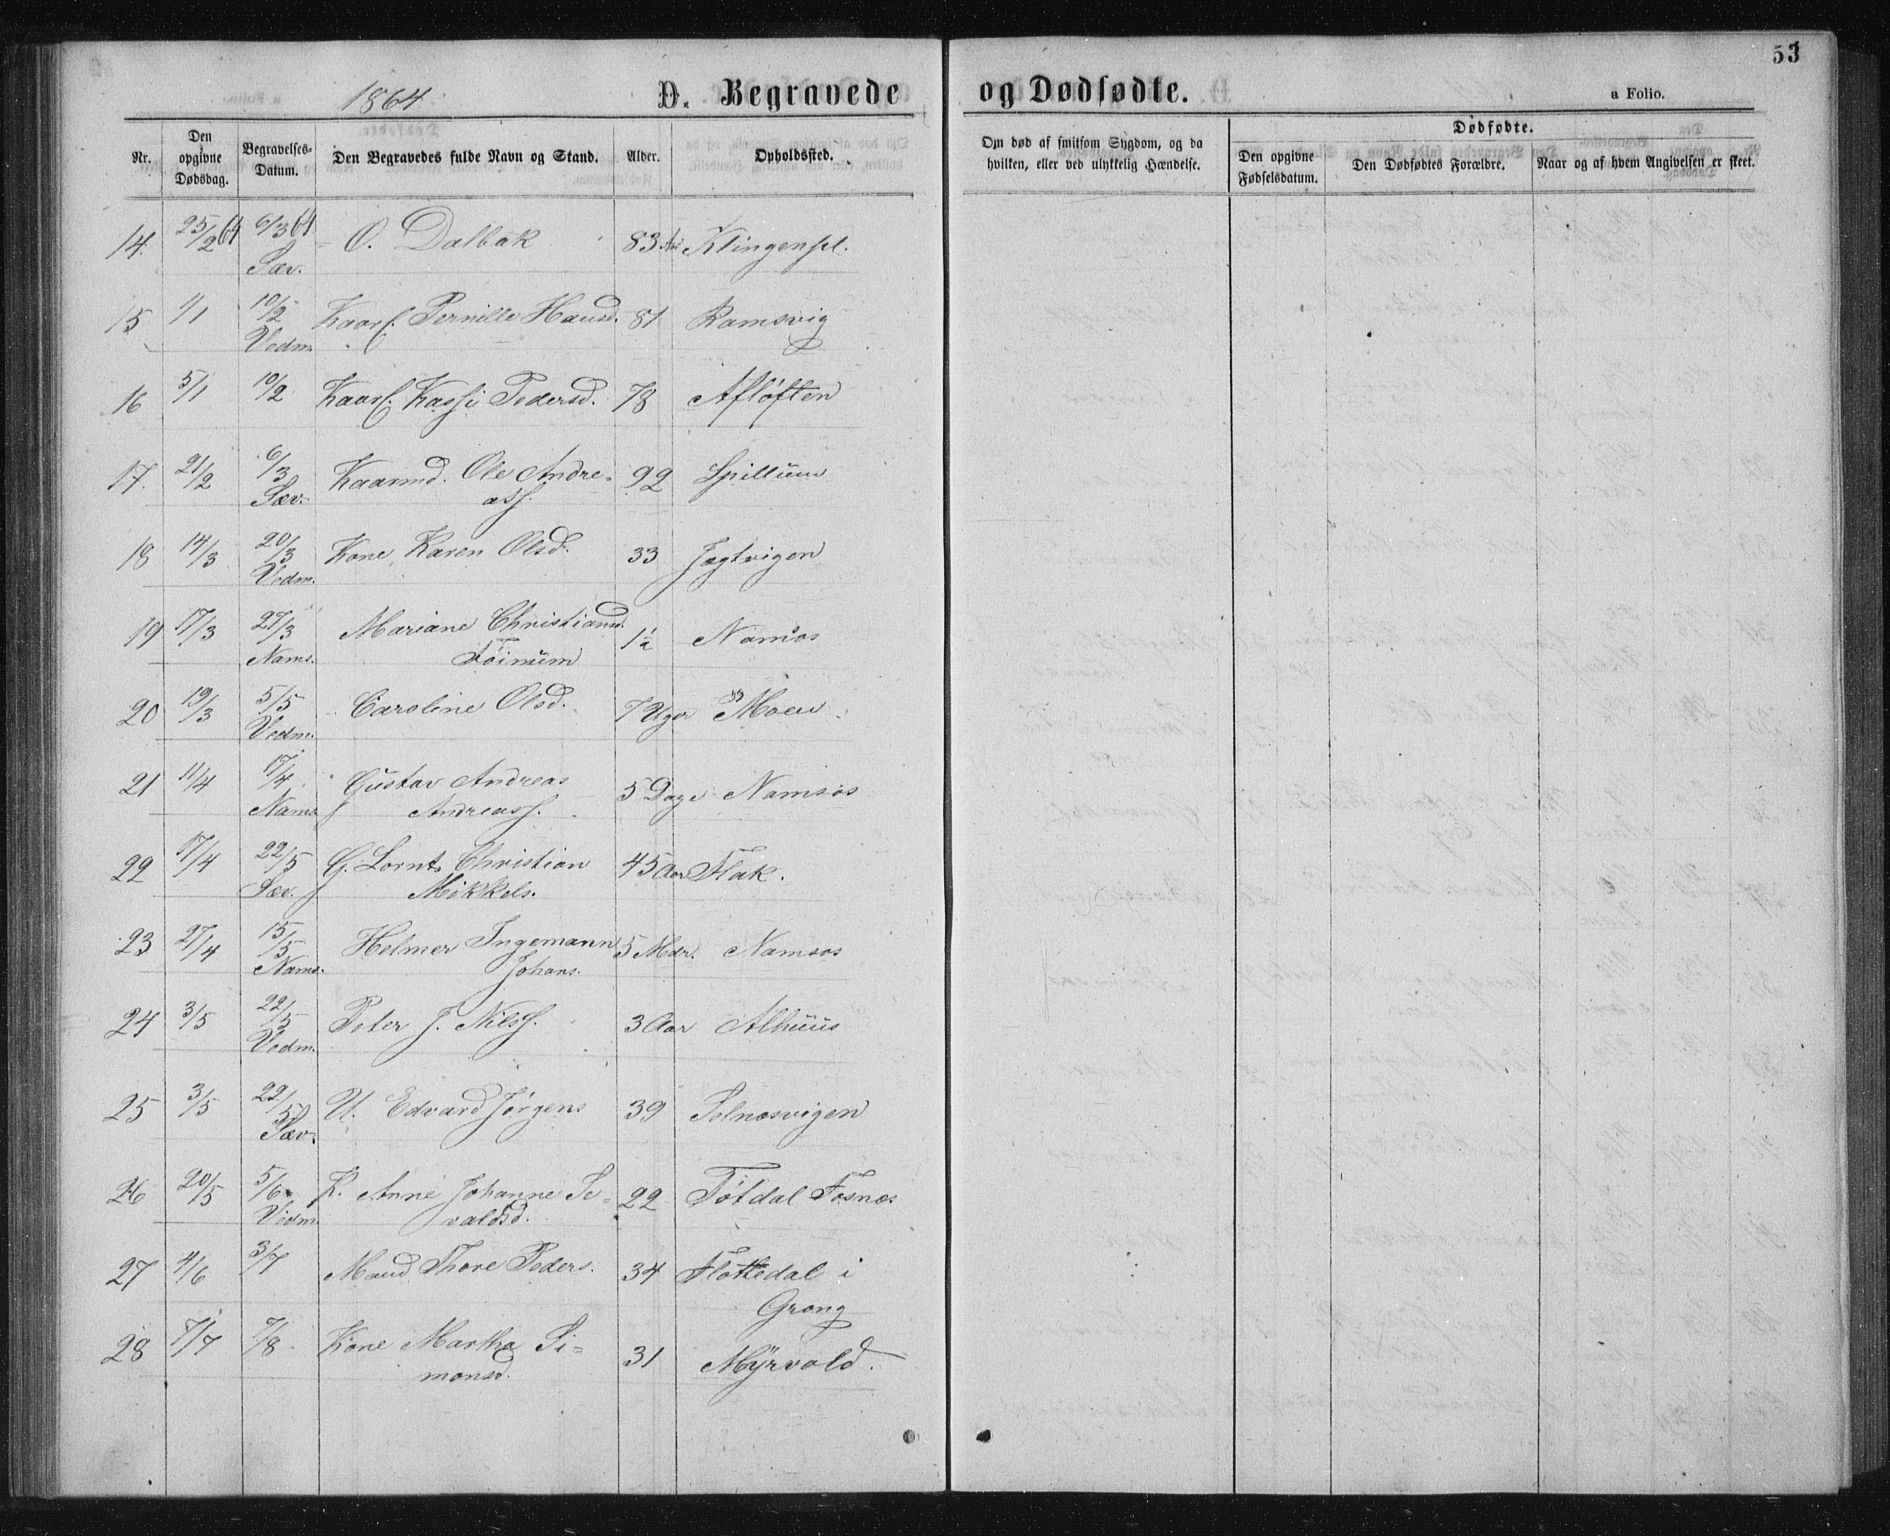 53
1864. D. Begravede og Dødfødte. a Folio.
Nr. Den opgivne Dødsdag. Begravelses-Datum. Den Begravedes fulde Navn og Stand. Alder. Opholdssted. Om død af smitsom Sygdom, og da hvilken, eller ved ulykkelig Hændelse. Dødfødte. Den opgivne Fødselsdatum. Den Dødfødtes Forældre. Naar og af hvem Angivelsen er skeet.
14. 25/2 64 6/3 64 O. Dalbak 83 Aar Klingenpl.
Sæv.
15 1/1 10/2 Kaarf. Pernille Hansd. 81 Ramsvig
Vedm.
16 5/1 10/2 Kaarf. Pedersd. 78 Afløften
17. 21/2 6/3 Kaarmd. Ole Andre-
Sæv. ass. 92 Spillum
18 14/3 20/3 Kone Karen Olsd. 33 Jægtvigen
Vedm.
19 17/3 27/3 Mariane Christiansd. 1½ Namsos
Nams. Føinum
20 19/3 5/5 Caroline Olsd. 7 Uger Moen
Vedm.
21 11/4 17/4 Gustav Andreas 5 Dage Namsos
Nams. Andreass.
22 17/4 22/5 G. Lornts Christian 45 Aar Flak.
Sæv. Mikkels.
23 27/4 15/5 Helmer Ingemann 5 Mdr. Namsos
Nams. Johans.
24 3/5 22/5 Peter J. Nilss. 3 Aar Alhuus
Vedm.
25 3/5 22/5 U. Edvard Jørgens 39 Selnæsvigen
Sæv.
26 20/5 5/6 K. Anne Johanne Se-
Vedm. valdsd. 22 Føtdal Fosnæs
27 4/6 3/7 Mand Thore Peders. 34 Fløttedal i
Grong
28 7/7 7/8 Kone Martha Si-
monsd. 31 Myrvold.